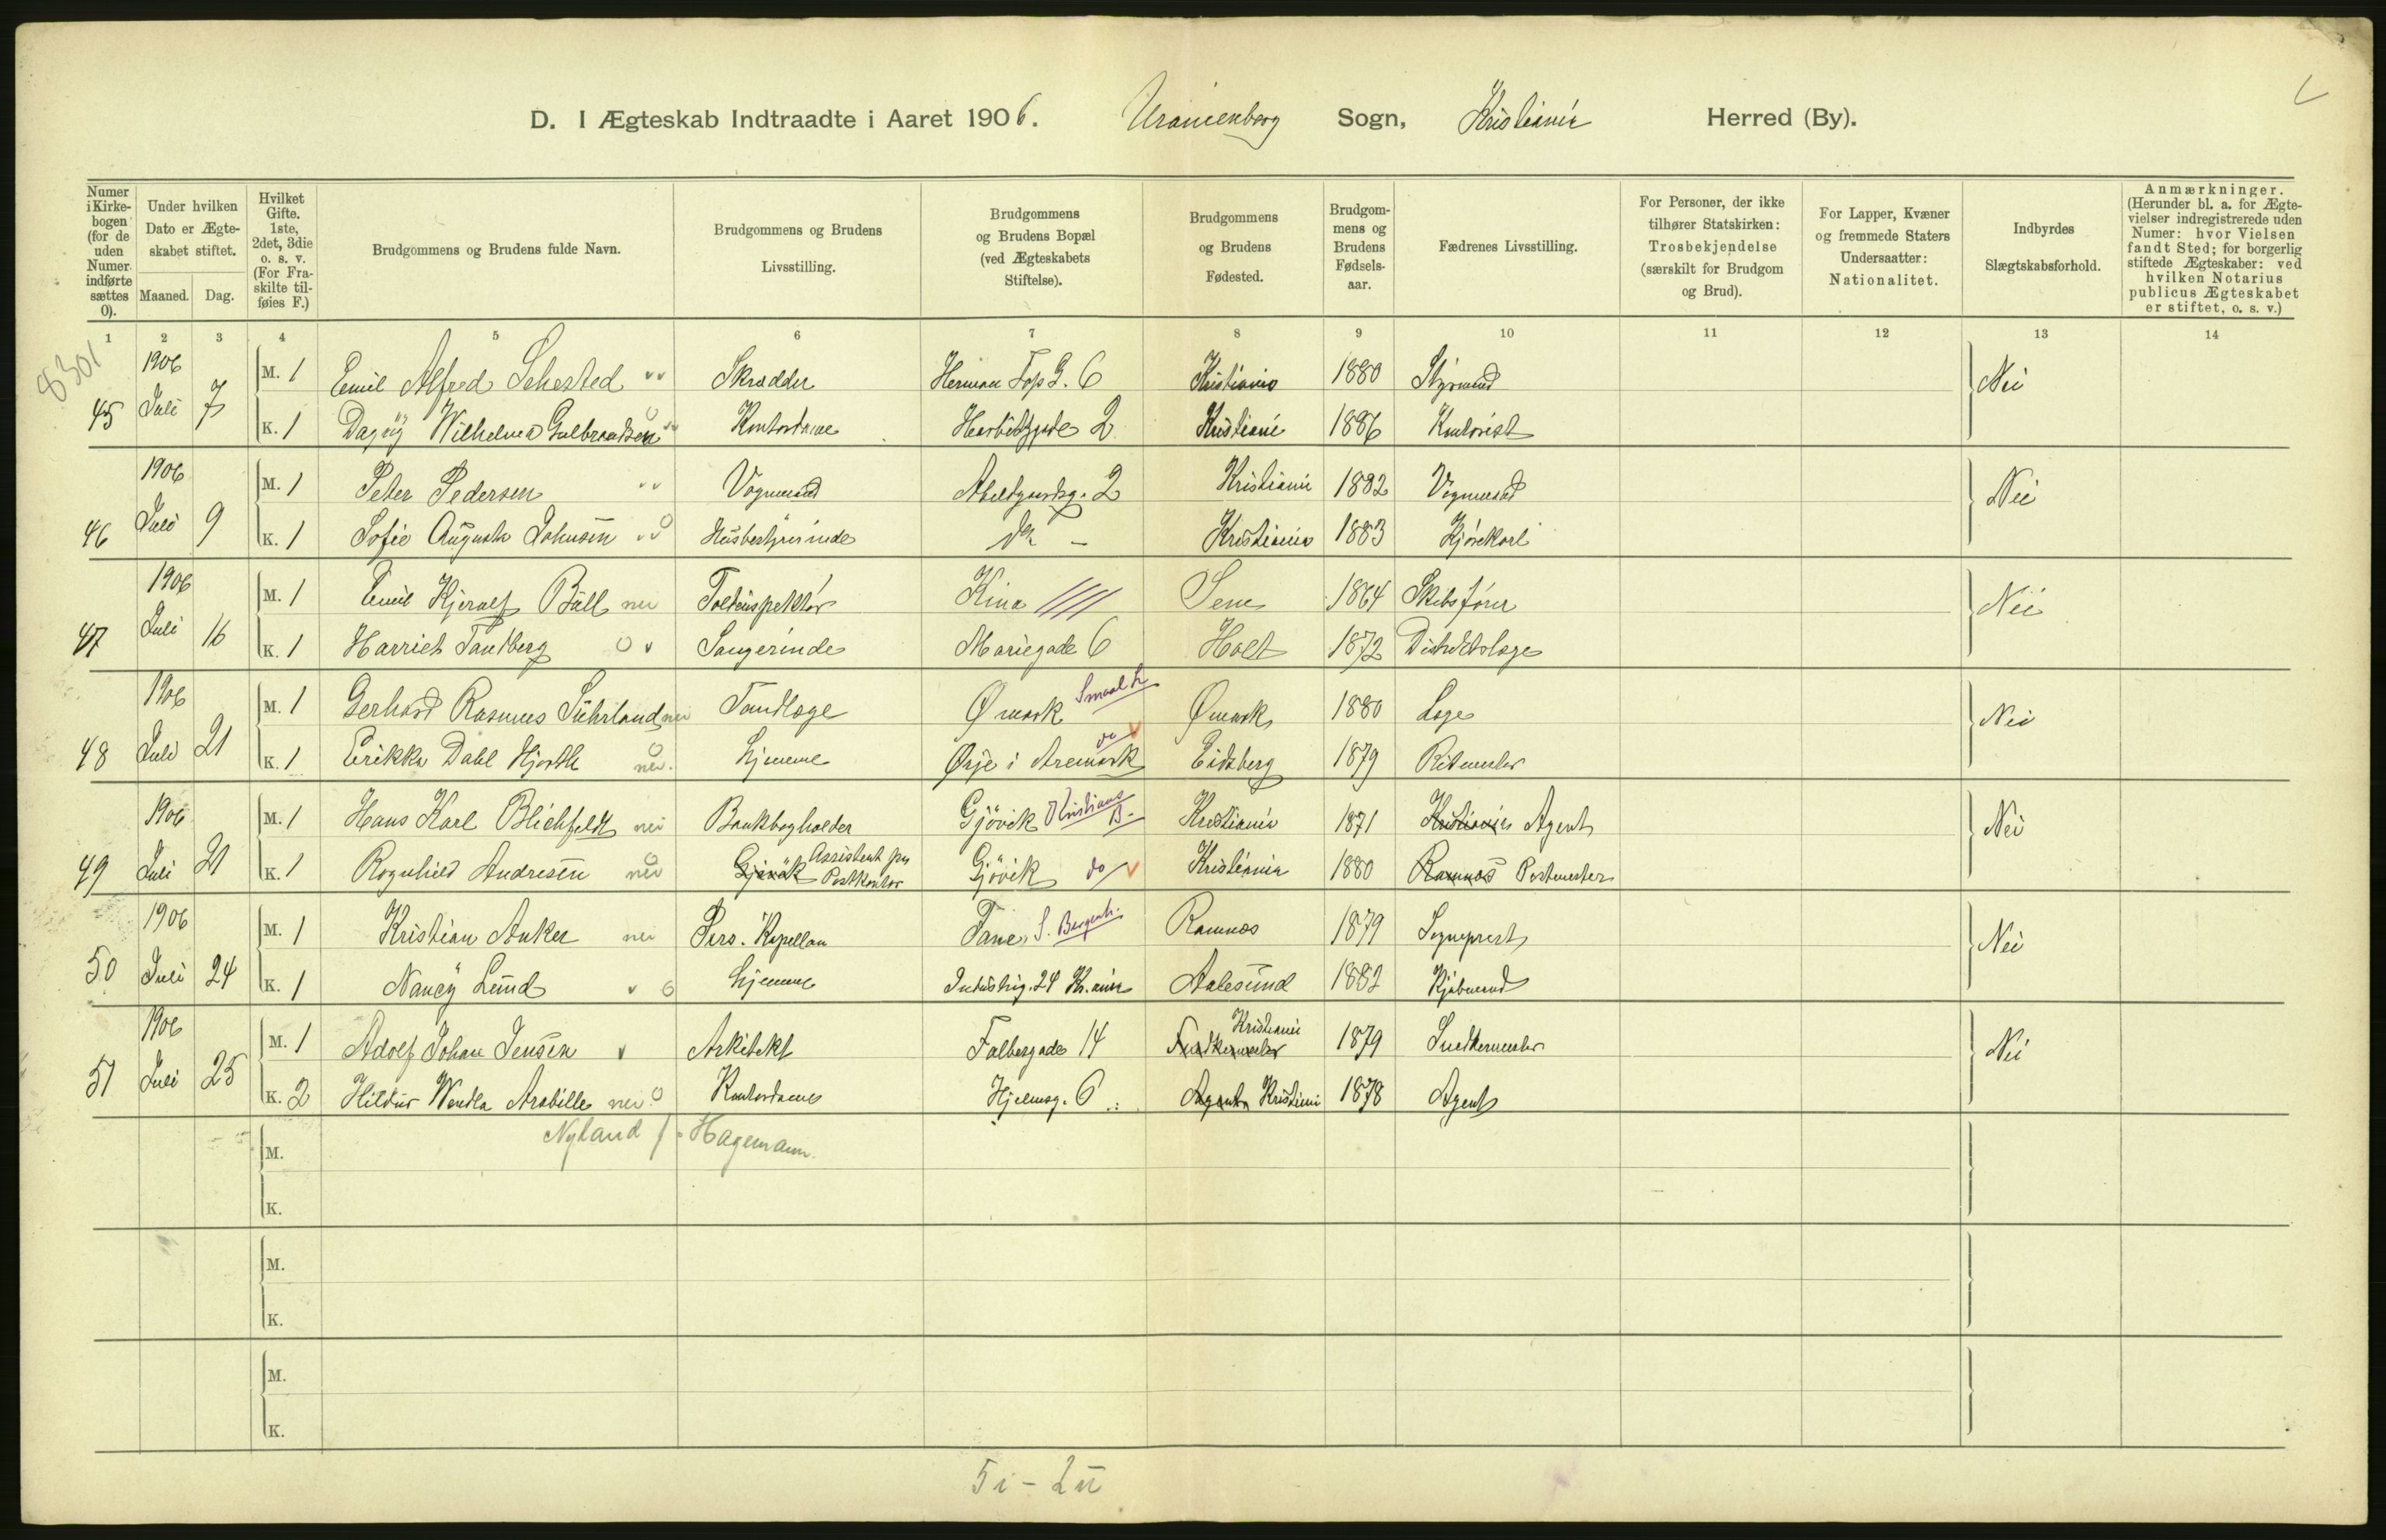 D. I Ægteskab Indtraadte i Aaret 1906. Uranienborg Sogn, Kristiania Herred (By).
Numer i Kirkebogen (for de uden Numer indførte sættes 0).
Under hvilken Dato er Ægteskabet stiftet.
Maaned. Dag.
Hvilket Gifte. 1ste, 2det, 3die o. s. v. (For Fraskilte tilføies F.)
Brudgommens og Brudens fulde Navn.
Brudgommens og Brudens Livsstilling.
Brudgommens og Brudens Bopæl (ved Ægteskabets Stiftelse).
Brudgommens og Brudens Fødested.
Brudgommens og Brudens Fødselsaar.
Fædrenes Livsstilling.
For Personer, der ikke tilhører Statskirken: Trosbekjendelse (særskilt for Brudgom og Brud).
For Lapper, Kvæner og fremmede Staters Undersaatter: Nationalitet.
Indbyrdes Slægtskabsforhold.
Anmærkninger. (Herunder bl. a. for Ægtevielser indregistrerede uden Numer: hvor Vielsen fandt Sted; for borgerlig stiftede Ægteskaber: ved hvilken Notarius publicus Ægteskabet er stiftet, o. s. v.)
1 2 3 4 5 6 7 8 9 10 11 12 13 14
8301
1906 M. 1 Emil Alfred Sehested Skrædder Herman Fos G. 6 Kristiania 1880 Styrmand Nei
45 Juli 7 K. 1 Dagny Wilhelmea Gulbrandsen Kontordame Hasbekgade 2 Kristiania 1886 Kontorist
1906 M. 1 Peter Pedersen Vognmand Abeldgaardsg. 2 Kristiania 1882 Vognmand Nei
46 Juli 9 K. 1 Sofie Augusta Johnsen Husbestyrerinde Do - Kristiania 1883 Kjørekarl
1906 M. 1 Emil Kjerulf Büll nei Toldinspektør Kina Sem 1864 Skibsfører Nei
47 Juli 16 K. 1 Harriet Tandberg Sangerinde Mariegade 6 Holt 1872 Distriktslæge
1906 M. 1 Gerhard Rasmus Suhrland nei Tandlæge Ømark Smaal. Ømark 1880 Læge Nei
48 Juli 21 K. 1 Erikka Dahl Hjorth nei. hjemme Ørje i Aremark do Eidsberg 1879 Ritmester
1906 M. 1 Hans Karl Blichfeldt nei Bankbogholder Gjövik Kristians B. Kristiania 1871 Kristiania Agent Nei
49 Juli 21 K. 1 Rognhild Andresen nei Gjövik Assistent paa Postkontor Gjövik do Kristiania 1880 Ramnæs Postmester
1906 M. 1 Kristian Anker nei Pers. Kapellan Fane S. Bergenh. Ramnæs 1879 Sogneprest Nei
50 Juli 24 K. 1 Nancy Lund hjemme Industrig. 24 Kr.ania Aalesund 1882 Kjøbmand
1906 M. 1 Adolf Johan Jensen Arkitekt Falbesgade 14 Snedkermester Kristiania 1879 Snedkermester Nei
51 Juli 25 K. 2 Hildur Wendla Arabille nei Kontordame Hjelmsg. 6 Agent Kristiania 1878 Agent
Nyland f. Hagemann.
M.
K.
M.
K.
M.
K.
5 i - 2 u